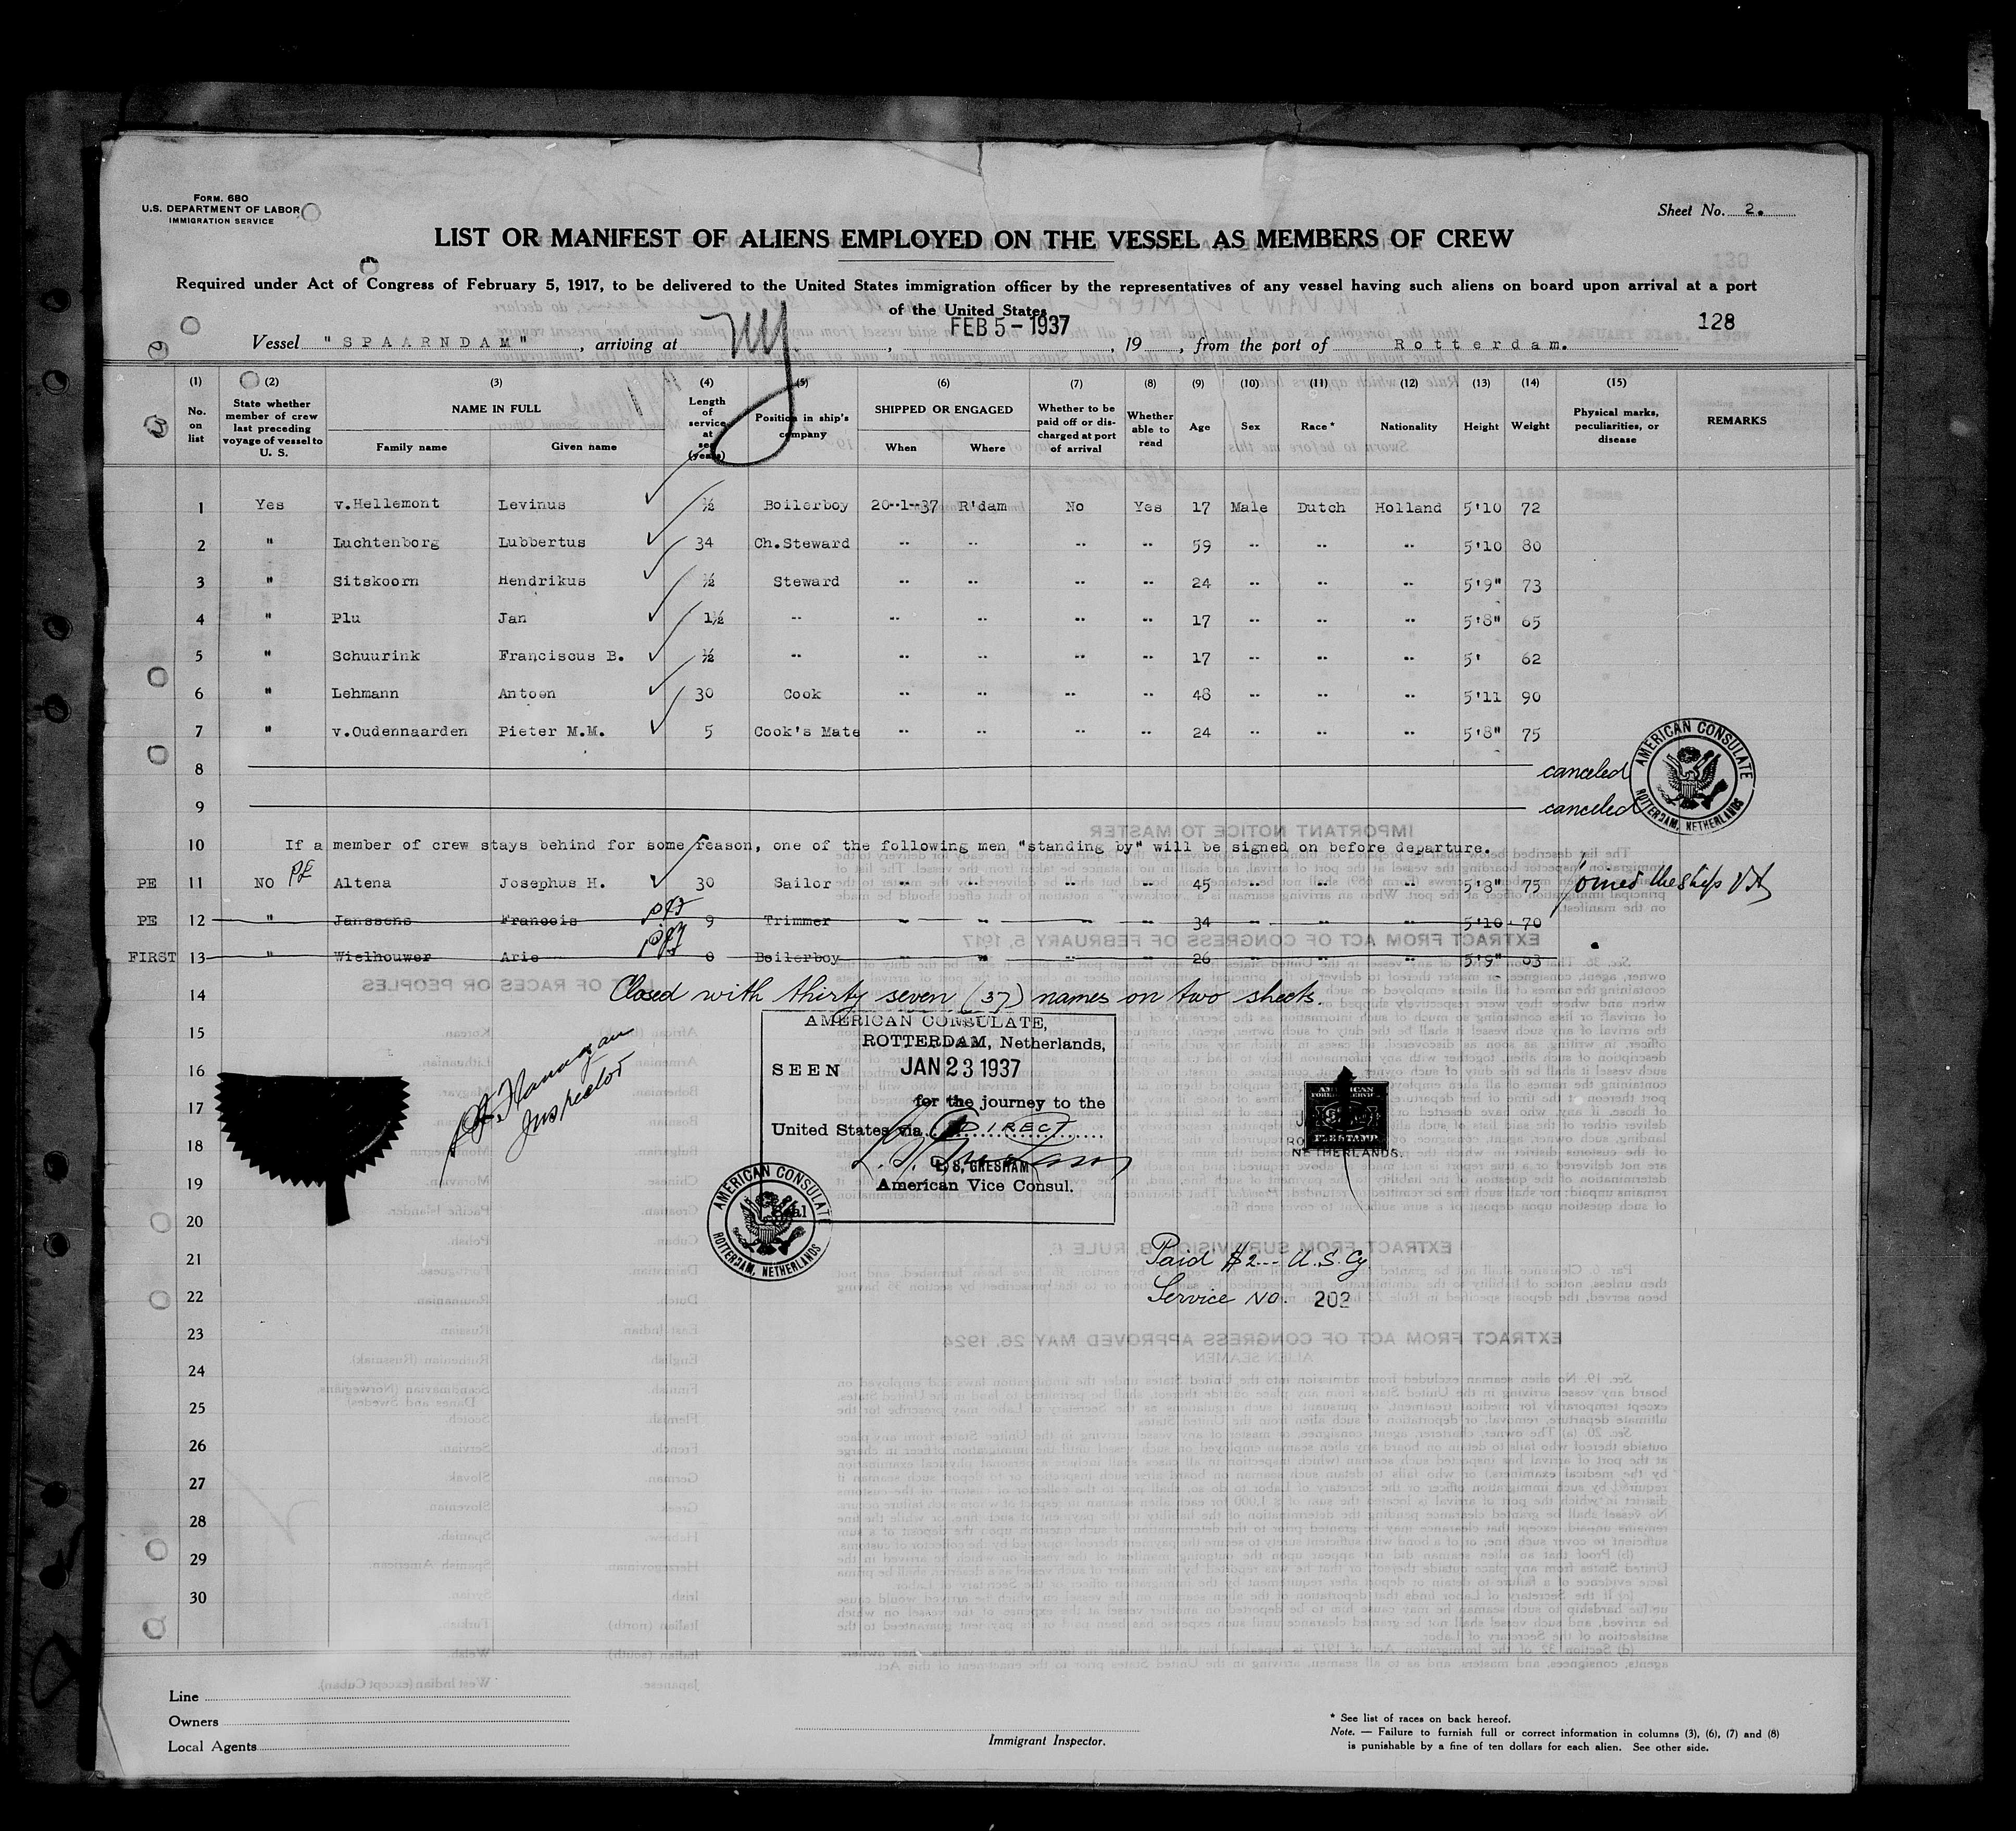 FORM. 680
U.S. DEPARTMENT OF LABOR
IMMIGRATION SERVICE
Sheet No. 2.
LIST OR MANIFEST OF ALIENS EMPLOYED ON THE VESSEL AS MEMBERS OF CREW
Required under Act of Congress of February 5, 1917, to be delivered to the United States immigration officer by the representatives of any vessel having such aliens on board upon arrival at a port
of the United States
FEB 5 - 1937
128
Vessel "SPAARNDAM", arriving at NY, 19, from the port of Rotterdam.
(1) (2) (3) (4) (5) (6) (7) (8) (9) (10) (11) (12) (13) (14) (15)
No. on list
State whether member of crew last preceding voyage of vessel to U. S.
NAME IN FULL
Family name
Given name
Length of service at sea (years)
Position in ship's company
SHIPPED OR ENGAGED
When
Where
Whether to be paid off or discharged at port of arrival
Whether able to read
Age
Sex
Race *
Nationality
Height
Weight
Physical marks, peculiarities, or disease
REMARKS
1 Yes v.Hellemont Levinus ½ Boilerboy 20--1--37 R'dam No Yes 17 Male Dutch Holland 5'10 72
2 " Luchtenborg Lubbertus 34 Ch.Steward -- -- -- -- 59 -- -- -- 5'10 80
3 " Sitskoorn Hendrikus ½ Steward -- -- -- -- 24 -- -- -- 5'9" 73
4 " Plu Jan 1½ -- -- -- -- -- 17 -- -- -- 5'8" 65
5 " Schuurink Franciscus B. ½ -- -- -- -- -- 17 -- -- -- 5' 62
6 " Lehmann Antoen 30 Cook -- -- -- -- 48 -- -- -- 5'11 90
7 " v.Oudennaarden Pieter M.M. 5 Cook's Mate -- -- -- -- 24 -- -- -- 5'8" 75
8 canceled
9 canceled
AMERICAN CONSULATE
ROTTERDAM, NETHERLANDS
10 If a member of crew stays behind for some reason, one of the following men "standing by" will be signed on before departure.
PE 11 NO Altena Josephus H. 30 Sailor -- -- -- -- 45 -- -- -- 5'8" 75 joined the ship
PE 12 " Janssens Francois 9 Trimmer -- -- -- -- 34 -- -- -- 5'10 70
FIRST 13 " Wielhouwer Arie 0 Boilerboy -- -- -- -- 26 -- -- -- 5'9" 63
14 Closed with thirty seven (37) names on two sheets.
15
16
17
18
19
20
21
22
23
24
25
26
27
28
29
30
Inspector
AMERICAN CONSULATE,
ROTTERDAM, Netherlands,
SEEN JAN 23 1937
for the journey to the
United States via DIRECT
L. S. GRESHAM
American Vice Consul.
Seal
AMERICAN CONSULATE
ROTTERDAM, NETHERLANDS
AMERICAN
FEE STAMP
NETHERLANDS.
Paid $2-- U.S.Cy
Service No. 202
Line
Owners
Local Agents
Immigrant Inspector.
* See list of races on back hereof.
Note. — Failure to furnish full or correct information in columns (3), (6), (7) and (8)
is punishable by a fine of ten dollars for each alien. See other side.